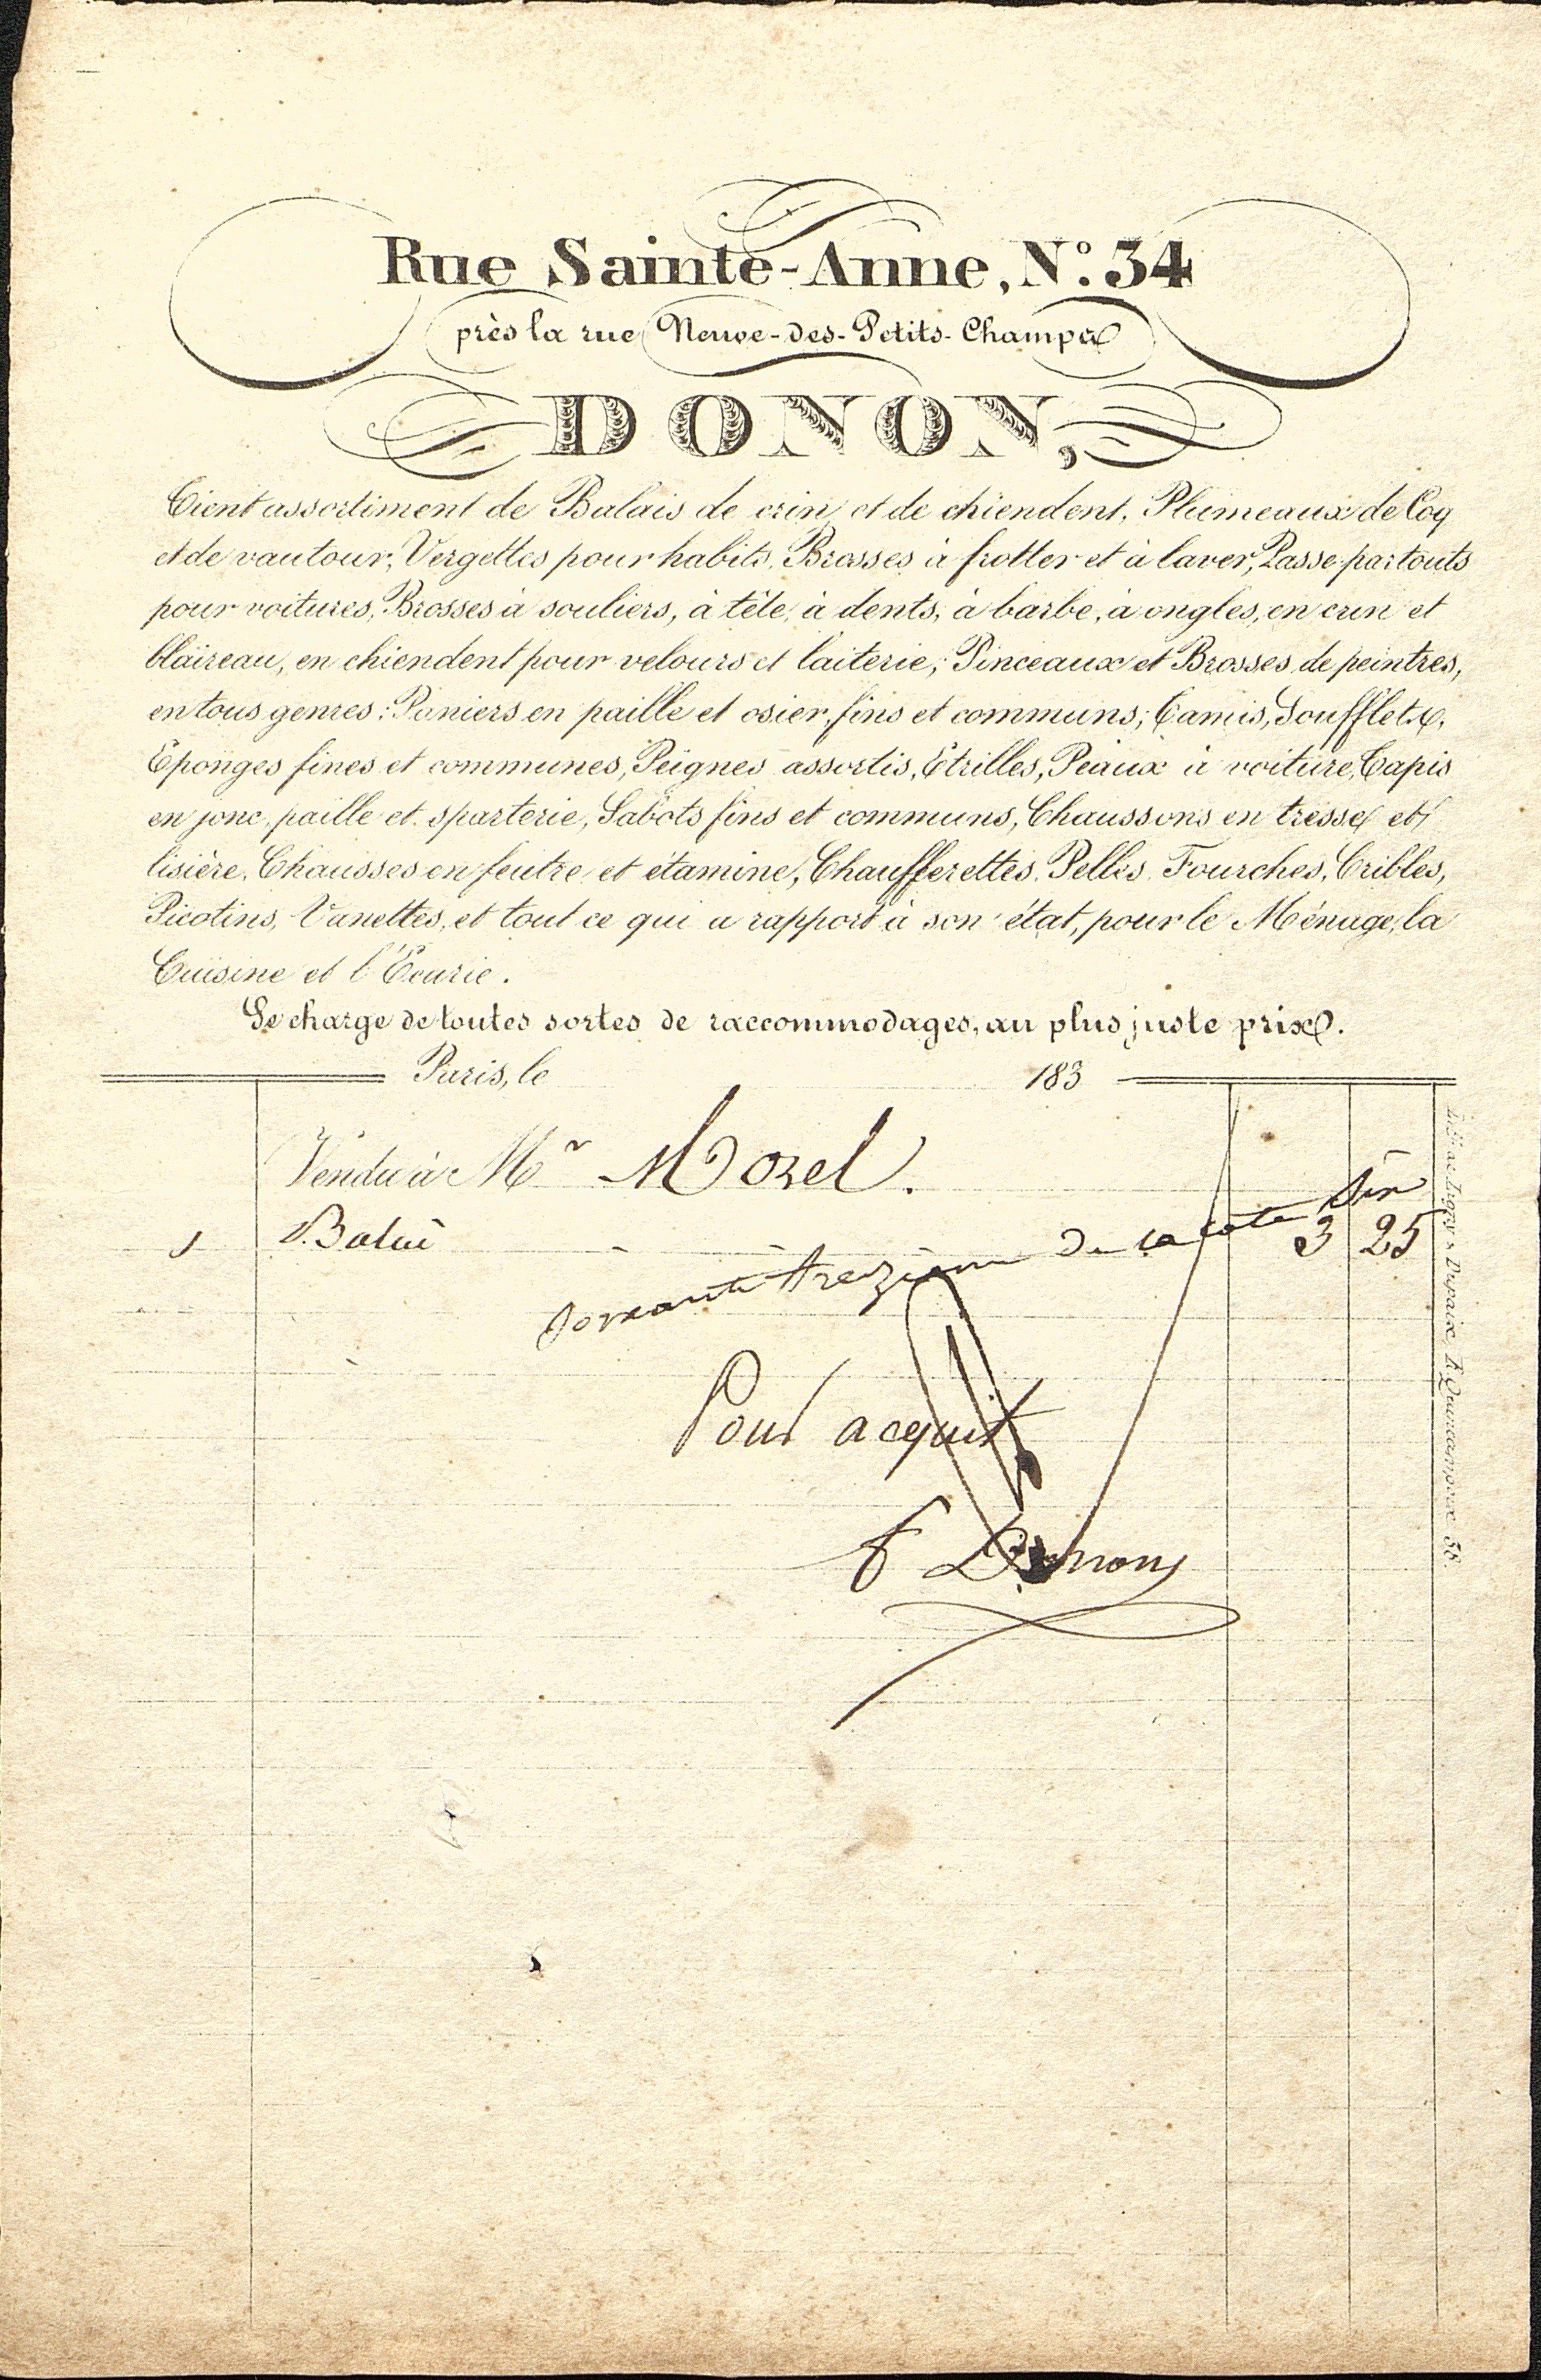 Rue Sainte-Anne, N.º 34
près la rue Neuve-des-Petits-Champs
DONON,
Tient assortiment de Balais de crin et de chiendent, Plumeaux de Coq
et de vautour; Vergettes pour habits, Brosses à frotter et à laver, Passe-partouts
pour voitures, Brosses à souliers, à tête, à dents, à barbe, à ongles, en crin et
blaireau, en chiendent pour velours et laiterie; Pinceaux et Brosses de peintres,
en tous genres; Paniers en paille et osier, fins et communs; Tamis, Soufflets,
Éponges fines et communes, Peignes assortis, Étrilles, Peaux à voiture, Tapis
en jonc, paille et sparterie, Sabots fins et communs, Chaussons en tresse et
lisière, Chausses en feutre et étamine, Chaufferettes, Pelles, Fourches, Cribles,
Picotins, Vanettes, et tout ce qui a rapport à son état, pour le Ménage, la
Cuisine et l'Écurie.
Se charge de toutes sortes de raccommodages, au plus juste prix.
Paris, le 183
Vendu à Mr Morel.
1 Balai 3 25
Soixante treizieme de la cote Six
Pour acquit
f Donon
Dupaix, R. Quincampoix 38.